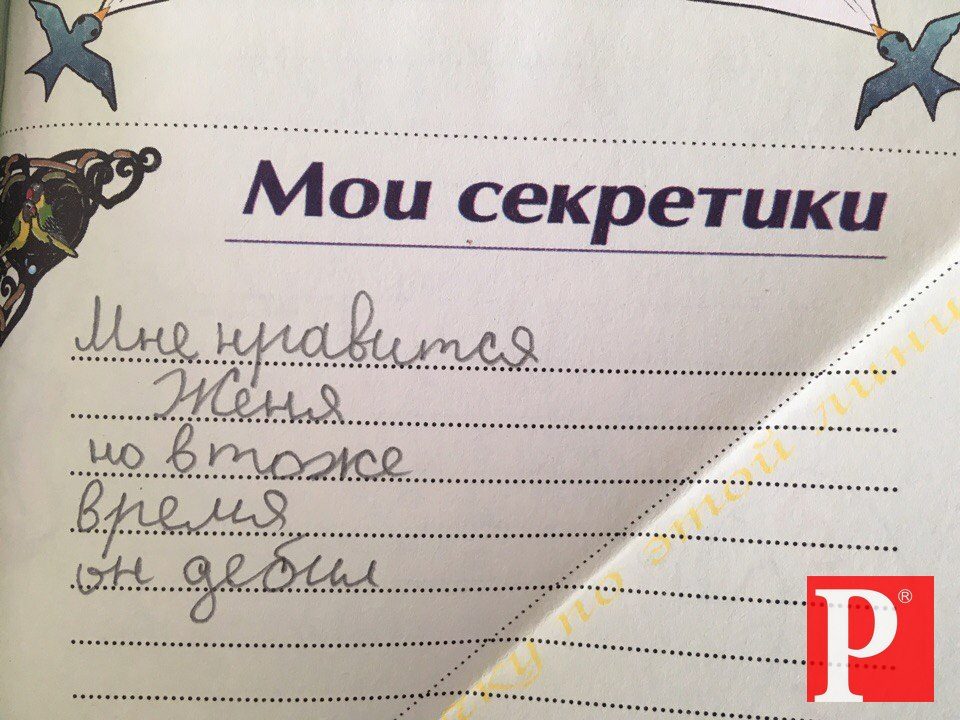 Мои секретики
Мне нравится
Женя
но в тоже
время
он дебил
ку по этой лини
P®